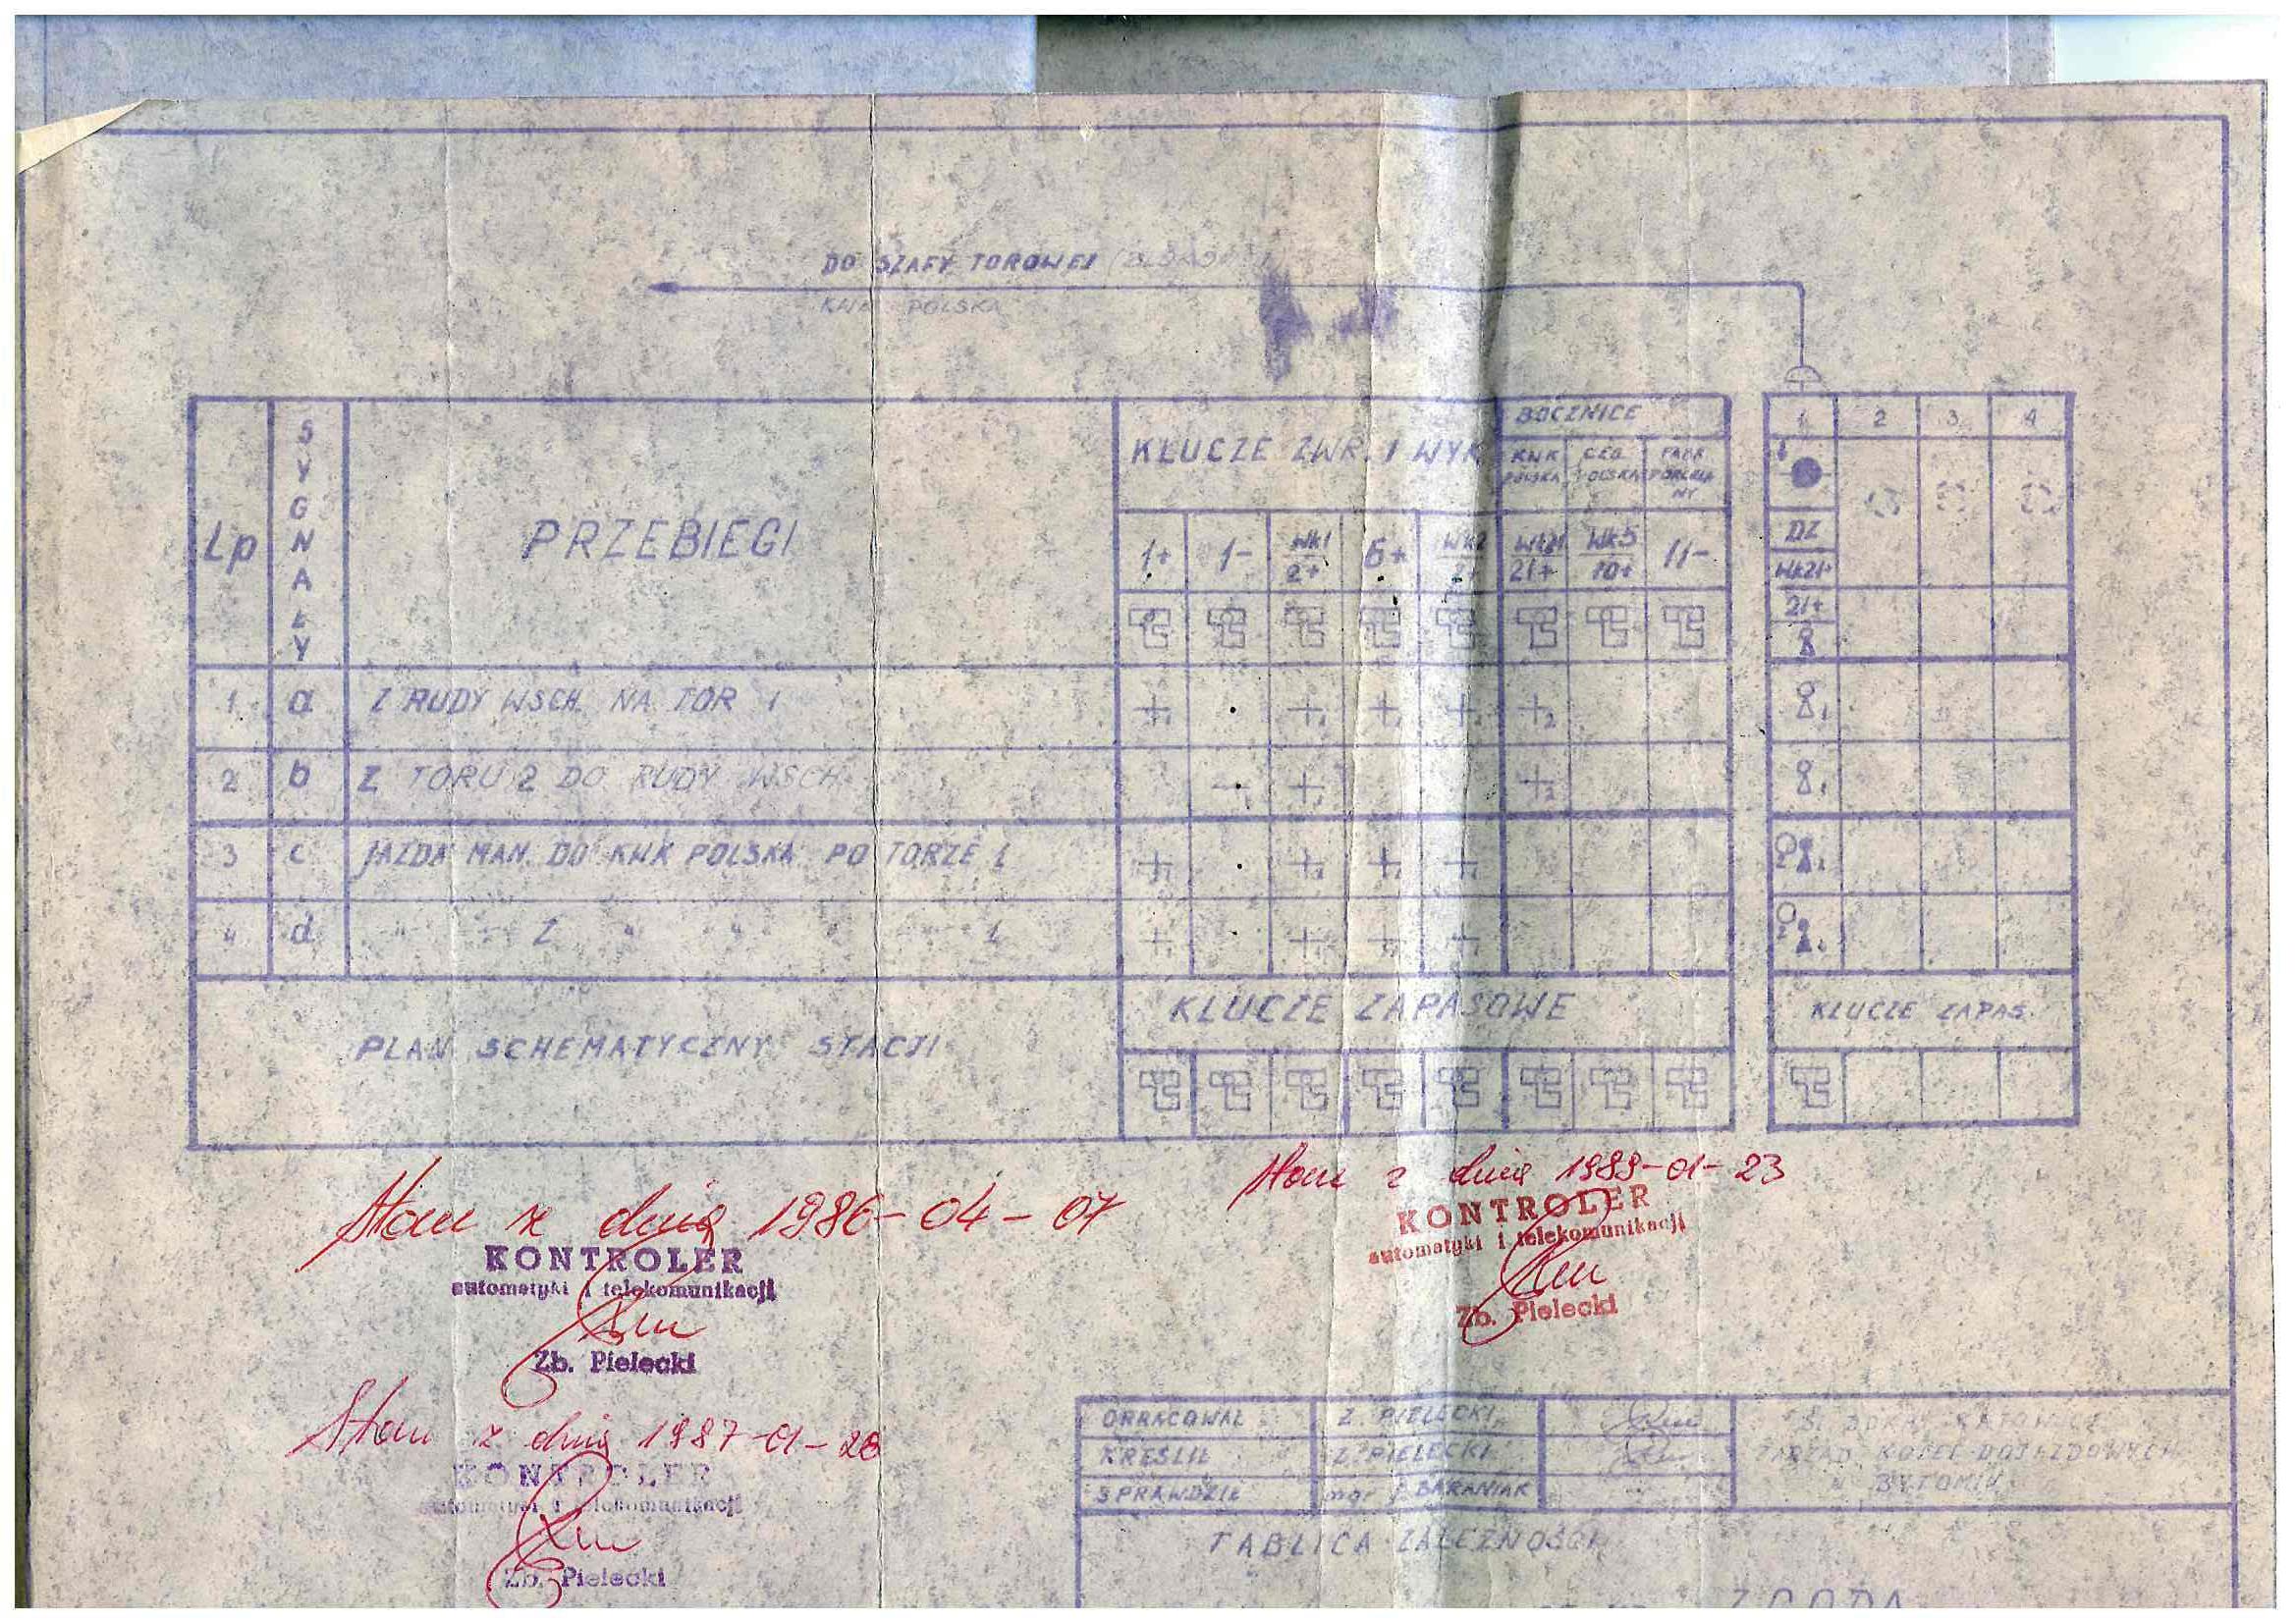 DO SZAFY TOROWEJ
KWK POLSKA
Lp
SYGNAŁY
PRZEBIEGI
KLUCZE ZWR. I WYK
BOCZNICE
KWK POLSKA
CEG. POLSKA
1+
1-
Wk1
2+
6+
Wk2
2+
Wk21
21+
Wk5
10+
11-
1 2 3 4
DZ
Wk21+
21+
1 a Z RUDY WSCH. NA TOR 1
2 b Z TORU 2 DO RUDY WSCH.
3 c JAZDA MAN. DO KWK POLSKA PO TORZE 1
4 d " " Z " " " " 1
PLAN SCHEMATYCZNY STACJI
KLUCZE ZAPASOWE
KLUCZE ZAPAS.
Stan z dnia 1986-04-07
KONTROLER
automatyki i telekomunikacji
Zb. Pielecki
Stan z dnia 1989-01-23
KONTROLER
automatyki i telekomunikacji
Zb. Pielecki
Stan z dnia 1987-01-28
KONTROLER
automatyki i telekomunikacji
Zb. Pielecki
OPRACOWAŁ Z. PIELECKI
KREŚLIŁ Z. PIELECKI
SPRAWDZIŁ mgr J. BARANIAK
ŚL. DOKP KATOWICE
ZARZĄD KOLEI DOJAZDOWYCH
W BYTOMIU
TABLICA ZALEŻNOŚCI
ZGODA